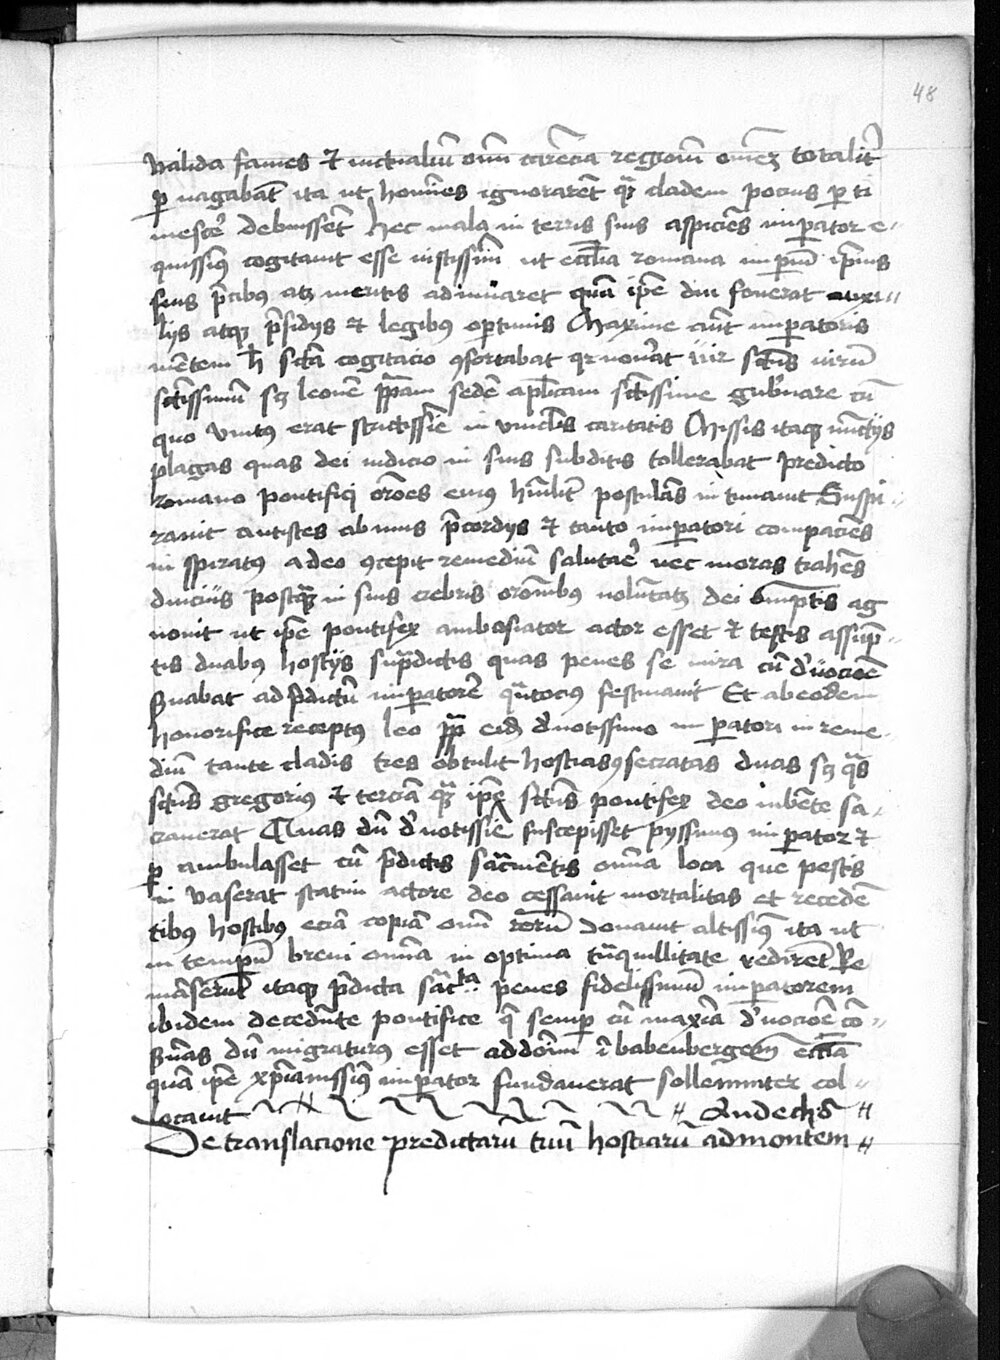 48
valida fames et victualiū om̄ carēcia regionē om̄eʒ totalit̄
ꝑ vagabat̄ ita ut homīes ignorarēt q̄ʒ cladem pocius ꝑ ti
mescē debuissēt hec mala in terris suis aspiciēs imꝑator e-
quissiꝰ cogitauit esse iustissimū ut eccl̄ia romana imꝑiū ip̄ius
suis p̄cibꝰ atꝫ meritis adiuuaret quā ip̄e diu fouerat auxi-
lijs atqꝫ p̄sidijs et legibꝰ optimis Maxime aūt imꝑatoris
mētem h̄ sctā cogitacio ꝯfortabat qr nouāt vir sctūs virū
sctissimū sꝫ leonē ppam sedē aplīcam sctissime gubnare cū
quo vnitꝰ erat strictissīe in vinclīs caritatis Missis itaqꝫ nūctijs
plagas quas dei iudicio in suis subditis tollerabat predicto
romano pontifici orōes eius hūilit̄ postulās in timauit Suspi-
rauit antistes ab imis p̄cordijs et tanto imꝑatori compaciēs
in spiratꝰ a deo ꝯcepit remediū salutaē nec moras trahēs
diucius postq̄ʒ in suis crebris orōnibꝰ volūtatꝫ dei omīptis ag
nouit ut ip̄e pontifex ambasiator actor esset et testis assūp-
tis duabꝰ hostijs sup̄dictis quas penes se mira cū d'uocōe
Suabat ad p̄dictū imꝑatorē q̄ntocius festinauit Et ab eodem
honorifice receptꝰ leo pp̄ eidꝫ d'uotissimo imꝑatori in reme-
diū tante cladis tres obtulit hostias ꝯsecratas duas sꝫ q̄s
sctūs gregoriꝰ et terciā q̄ʒ ip̄e sctūs pontifex deo iubēte sa-
crauerat Quas dū d'uotissīe suscepisset pyssimus imꝑator et
ꝑ ambulasset cū p̄dictis sac̄mētis om̄ia loca que pestis
in vaserat statim actore deo cessauit mortalitas et recedē
tibꝰ hostibꝰ eciā copiā om̄ rerū donauit altissiꝰ ita ut
in tempū breui om̄ia in optima t̄nquillitate redirēt Re
māserūt itaqꝫ p̄dicta sac̄ta penes fidelissimū imꝑatorem
ibidem decedēnte pontifice q̄ semꝑ cū maxīa d'uocōe cō-
Suās dū migraturꝰ esset ad dom̄ ī babenbergen̄ eccīā
quā ip̄e xp̄ianissiꝰ imꝑator fundauerat sollemniter col-
locauit Andechs
De translacione predictarū triū hostiarū ad montem